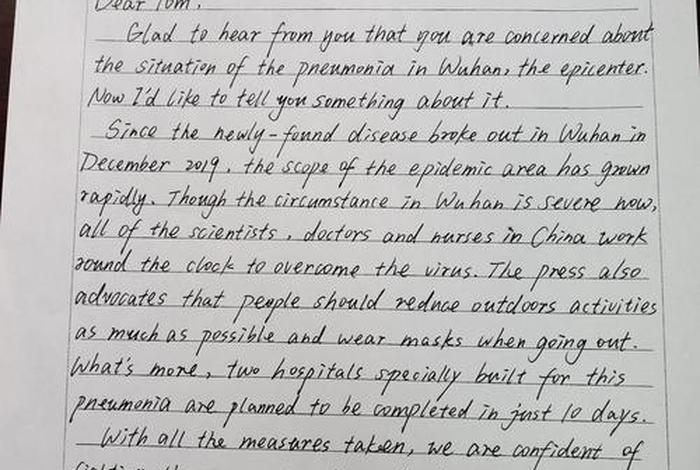 Dear Tom,
Glad to hear from you that you are concerned about
the situation of the pneumonia in Wuhan, the epicenter.
Now I'd like to tell you something about it.
Since the newly-found disease broke out in Wuhan in
December 2019, the scope of the epidemic area has grown
rapidly. Though the circumstance in Wuhan is severe now,
all of the scientists, doctors and nurses in China work
round the clock to overcome the virus. The press also
advocates that people should reduce outdoors activities
as much as possible and wear masks when going out.
What's more, two hospitals specially built for this
pneumonia are planned to be completed in just 10 days.
With all the measures taken, we are confident of